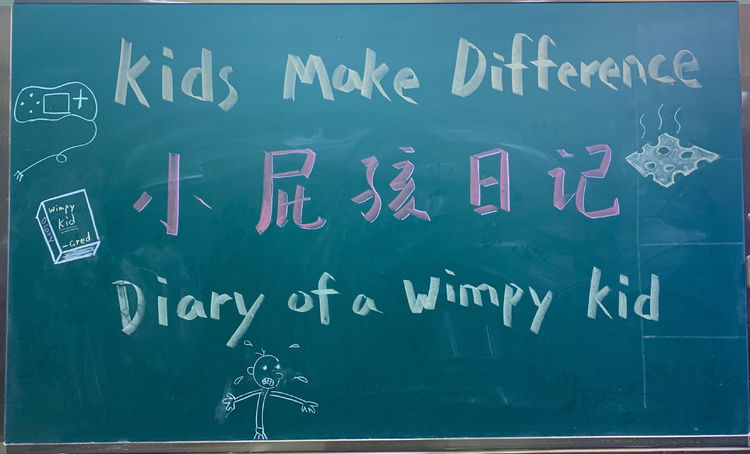 Kids Make Difference
小屁孩日记
Wimpy
Kid
-Gred
Diary of a Wimpy kid